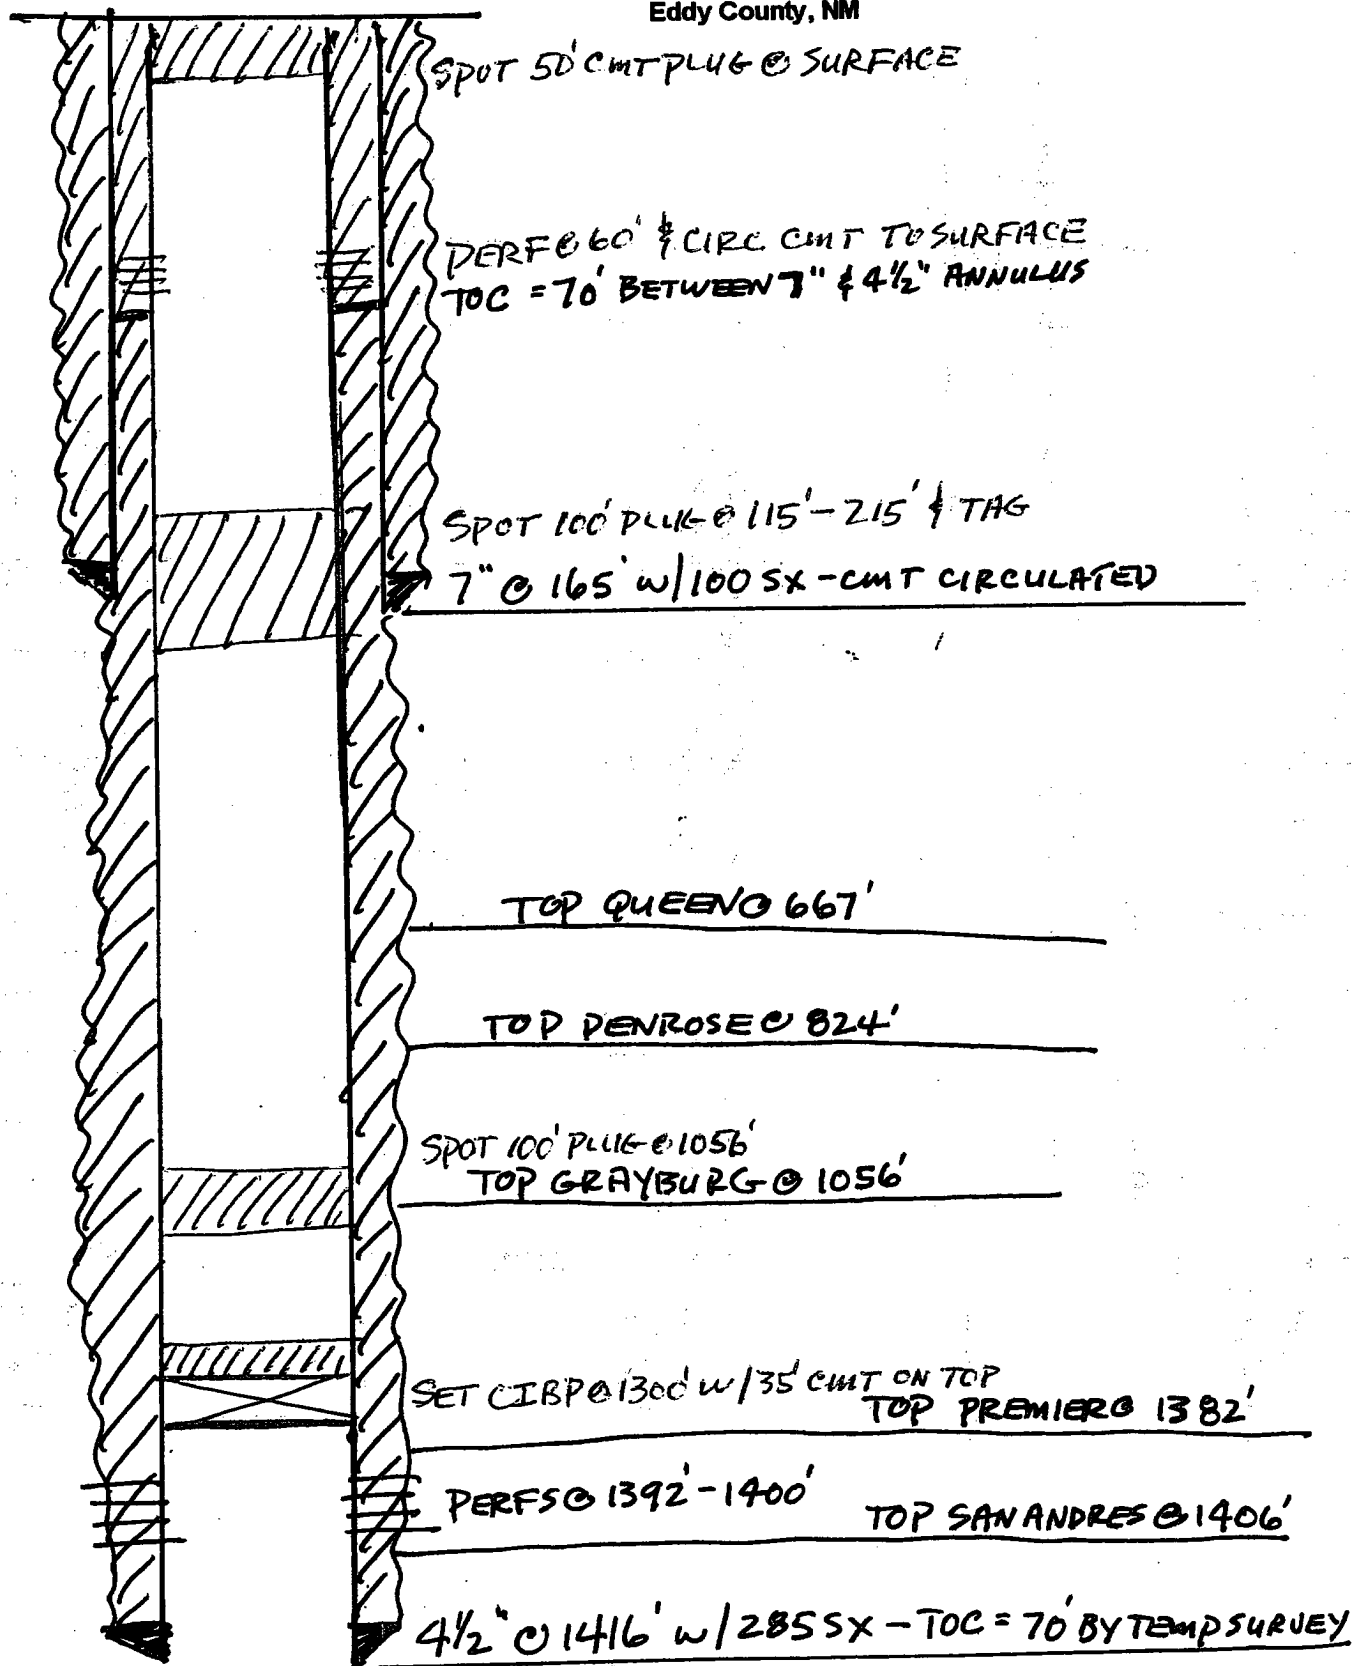 Eddy County, NM
SPOT 50' CMT PLUG @ SURFACE
PERF @ 60' & CIRC. CMT TO SURFACE
TOC = 70' BETWEEN 7" & 4½" ANNULUS
SPOT 100' PLUG @ 115' - 215' & TAG
7" @ 165' w/100 SX - CMT CIRCULATED
TOP QUEEN @ 667'
TOP PENROSE @ 824'
SPOT 100' PLUG @ 1056'
TOP GRAYBURG @ 1056'
SET CIBP @ 1300' w/35' CMT ON TOP
TOP PREMIER @ 1382'
PERFS @ 1392' - 1400'
TOP SAN ANDRES @ 1406'
4½" @ 1416' w/285 SX - TOC = 70' BY TEMP SURVEY